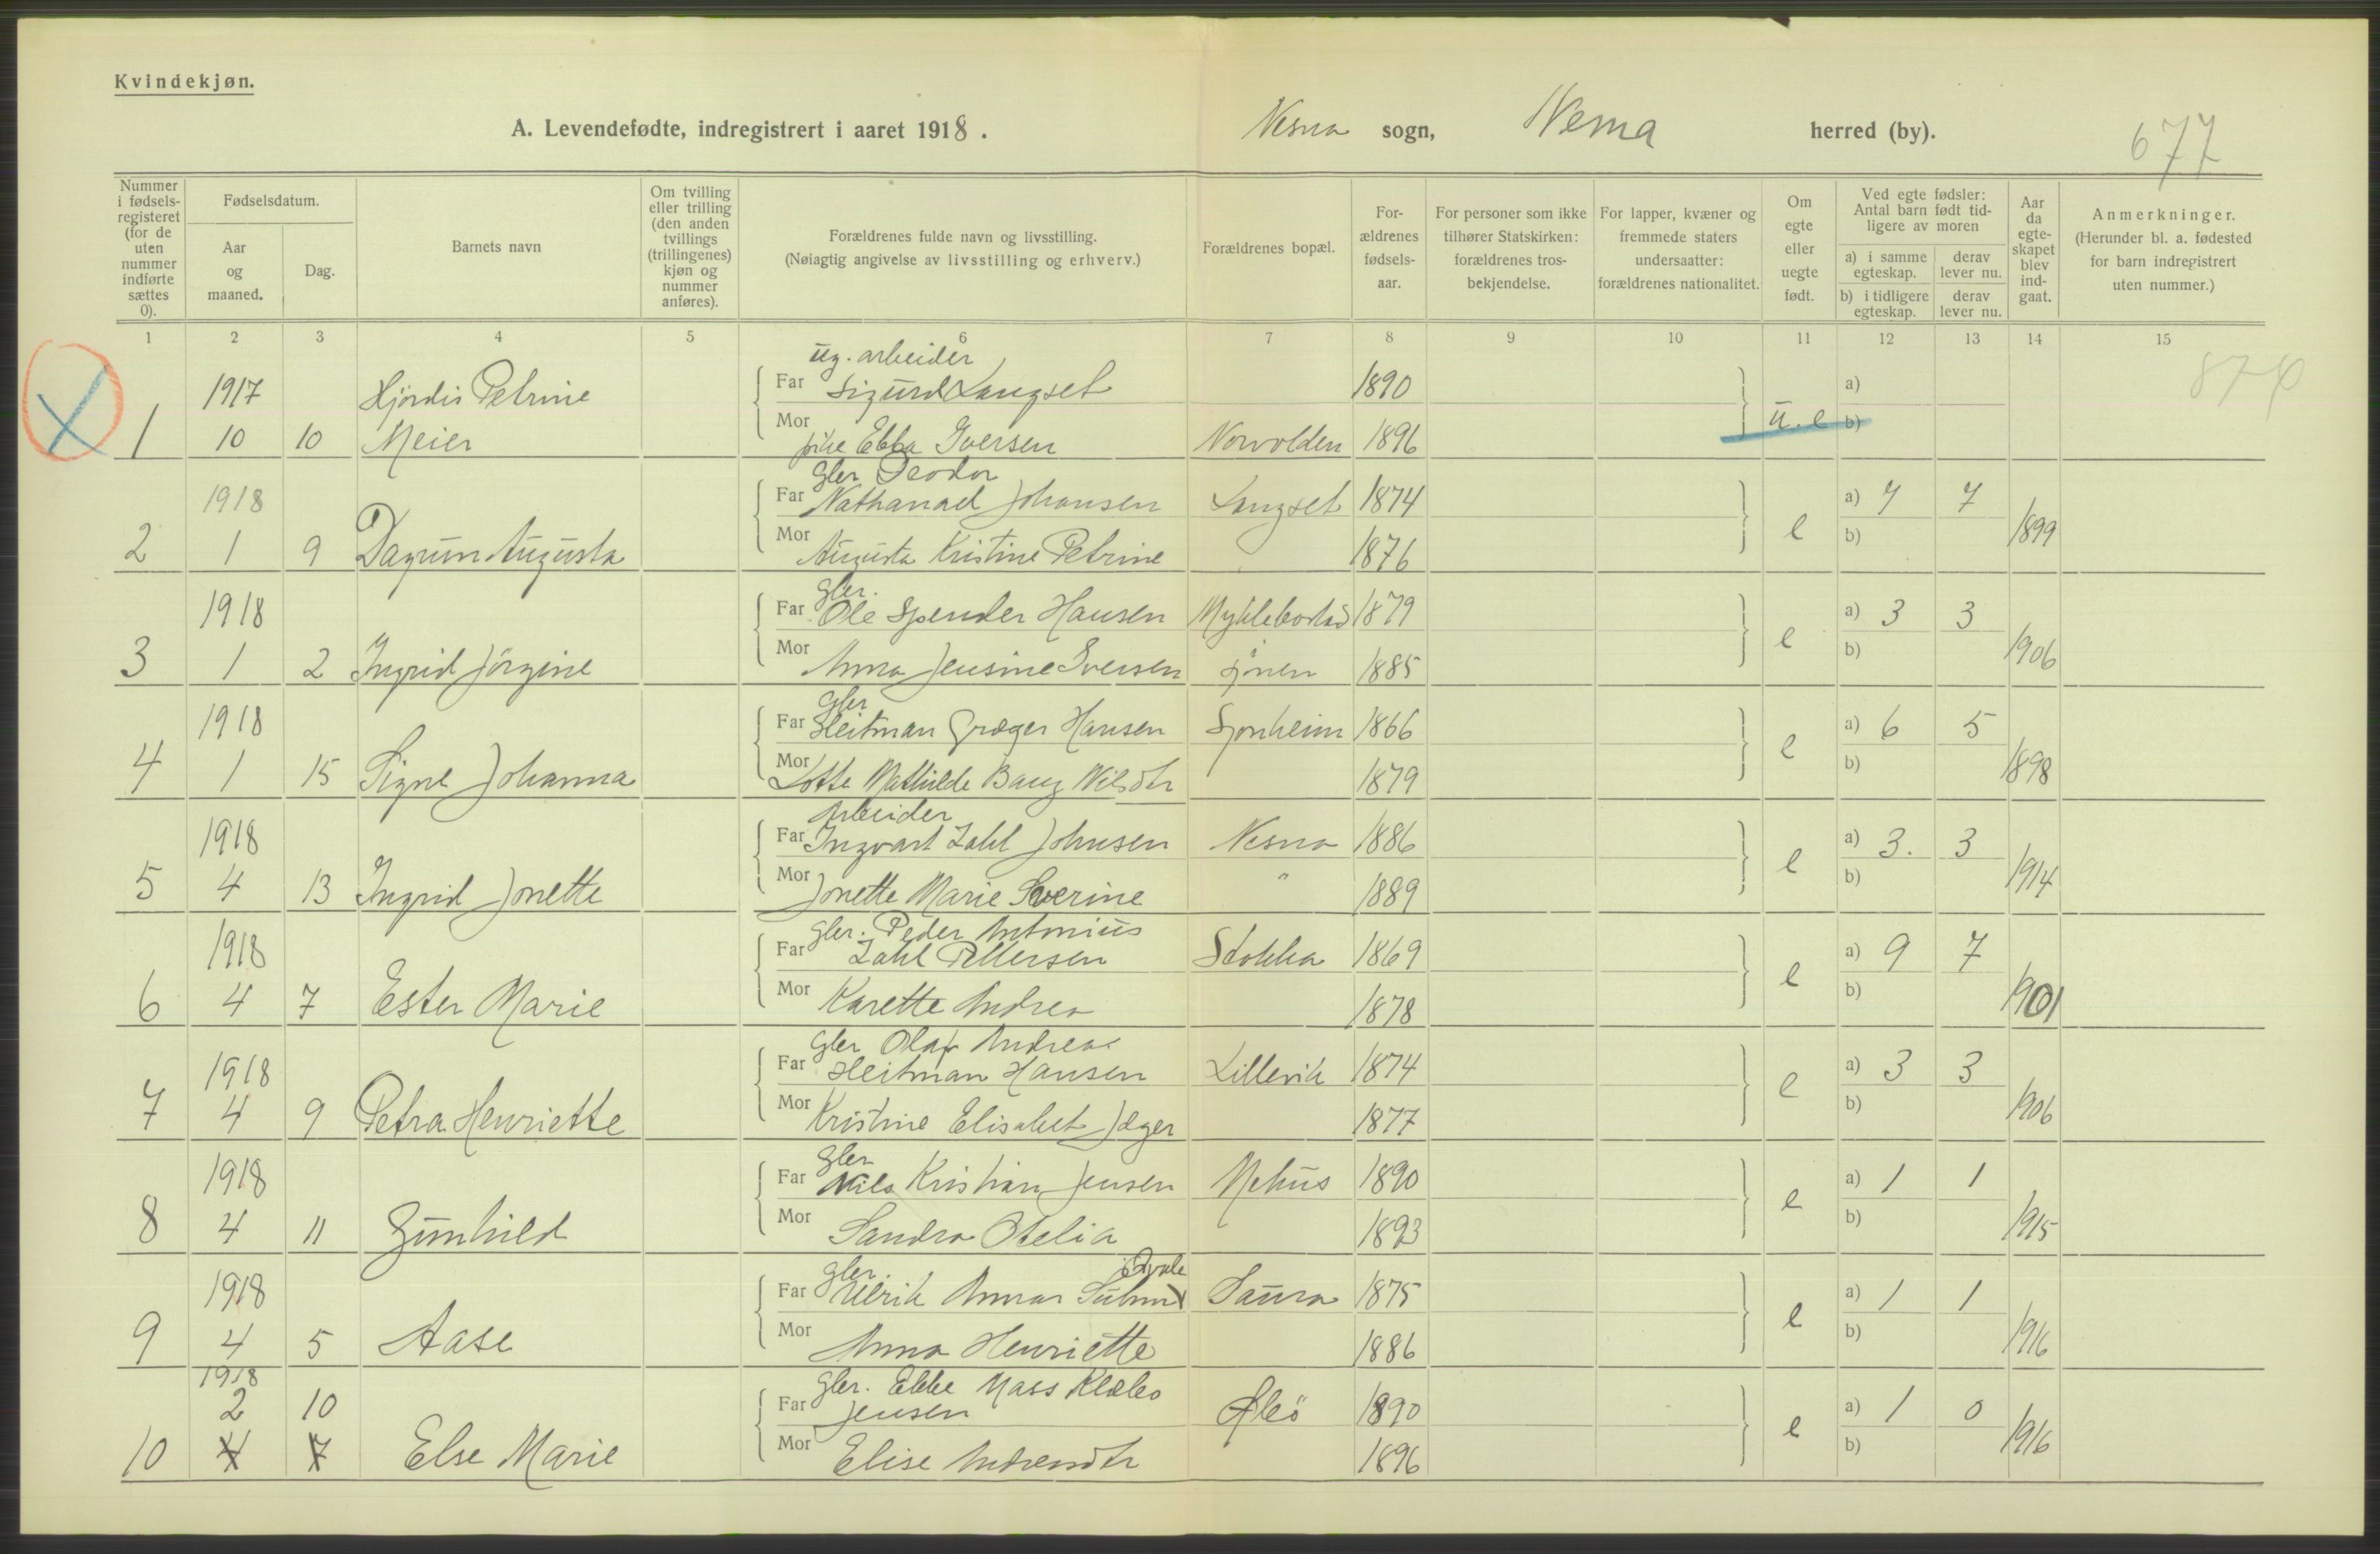 Kvindekjøn.
A. Levendefødte, indregistrert i aaret 1918. Nesna sogn, Nesna herred (by). 677
Nummer i fødselsregisteret (for de uten nummer indførte sættes 0).
Fødselsdatum.
Aar og maaned.
Dag.
Barnets navn
Om tvilling eller trilling (den anden tvillings (trillingenes) kjøn og nummer anføres).
Forældrenes fulde navn og livsstilling.
(Nøiagtig angivelse av livsstilling og erhverv.)
Forældrenes bopæl.
Forældrenes fødselsaar.
For personer som ikke tilhører Statskirken: forældrenes trosbekjendelse.
For lapper, kvæner og fremmede staters undersaatter: forældrenes nationalitet.
Om egte eller uegte født.
Ved egte fødsler: Antal barn født tidligere av moren
a) i samme egteskap. derav lever nu.
b) i tidligere egteskap. derav lever nu.
Aar da egteskapet blev indgaat.
Anmerkninger.
(Herunder bl. a. fødested for barn indregistrert uten nummer.)
1 2 3 4 5 6 7 8 9 10 11 12 13 14 15
ug. arbeider
1917 Hjördis Petrine Far Sigurd Langset 1890 a)
1 10 10 Meier Mor pike Ebba Iversen Norvolden 1896 u.e b)
gler Teodor
1918 Far Nathanael Johansen Langset 1874 a) 7 7
2 1 9 Dagum Augusta Mor Augusta Kristine Petrine 1876 e b) 1899
gler.
1918 Far Ole Spender Hansen Myklebostad 1879 a) 3 3
3 1 2 Ingrid Jörgine Mor Anna Jensine Iversen sjönen 1885 e b) 1906
gler
1918 Far Heitman Græger Hansen Sjonheim 1866 a) 6 5
4 1 15 Signe Johanna Mor Lotte Mathilde Bang Nilsdtr 1879 e b) 1898
Arbeider
1918 Far Ingvart Zahl Johnsen Nesna 1886 a) 3. 3
5 4 13 Ingrid Jonette Mor Jonette Marie Severine " 1889 e b) 1914
gler. Peder Antonius
1918 Far Zahl Pettersen Stokka 1869 a) 9 7
6 4 7 Ester Marie Mor Karette Andrea 1878 e b) 1901
gler Olaf Andreas
1918 Far Heitman Hansen Lillevik 1874 a) 3 3
7 4 9 Petra Henriette Mor Kristine Elisabet Jæger 1877 e b) 1906
gler
1918 Far Nils Kristian Jensen Mehus 1890 a) 1 1
8 4 11 Gunhild Mor Sandra Otelia 1893 e b) 1915
gler.
1918 Far Ulrik Annar Saura 1875 a) 1 1
9 4 5 Aase Mor Anna Henriette 1886 e b) 1916
1918 gler. Ebbe Mass Klæbo
2 10 Far Jensen 1890 a) 1 0
10 4 7 Else Marie Mor Elise Andreasdtr 1896 e b) 1916